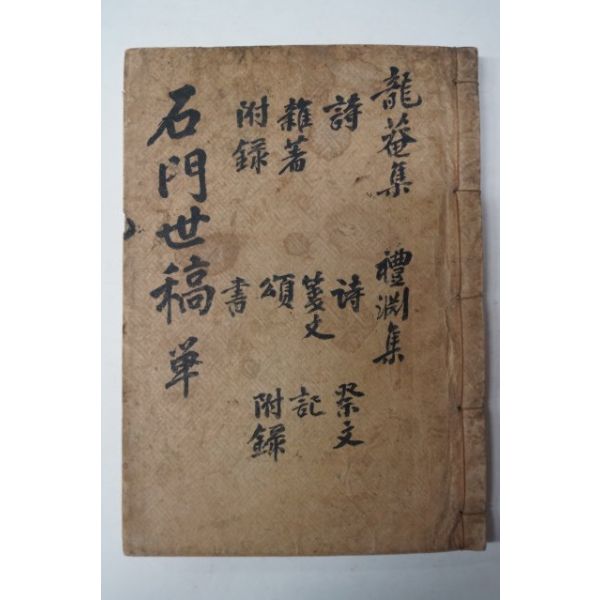 石門世稿 單
龍菴集
詩
雜著
附錄
禮淵集
詩
箋文
頌
書
祭文
記
附錄